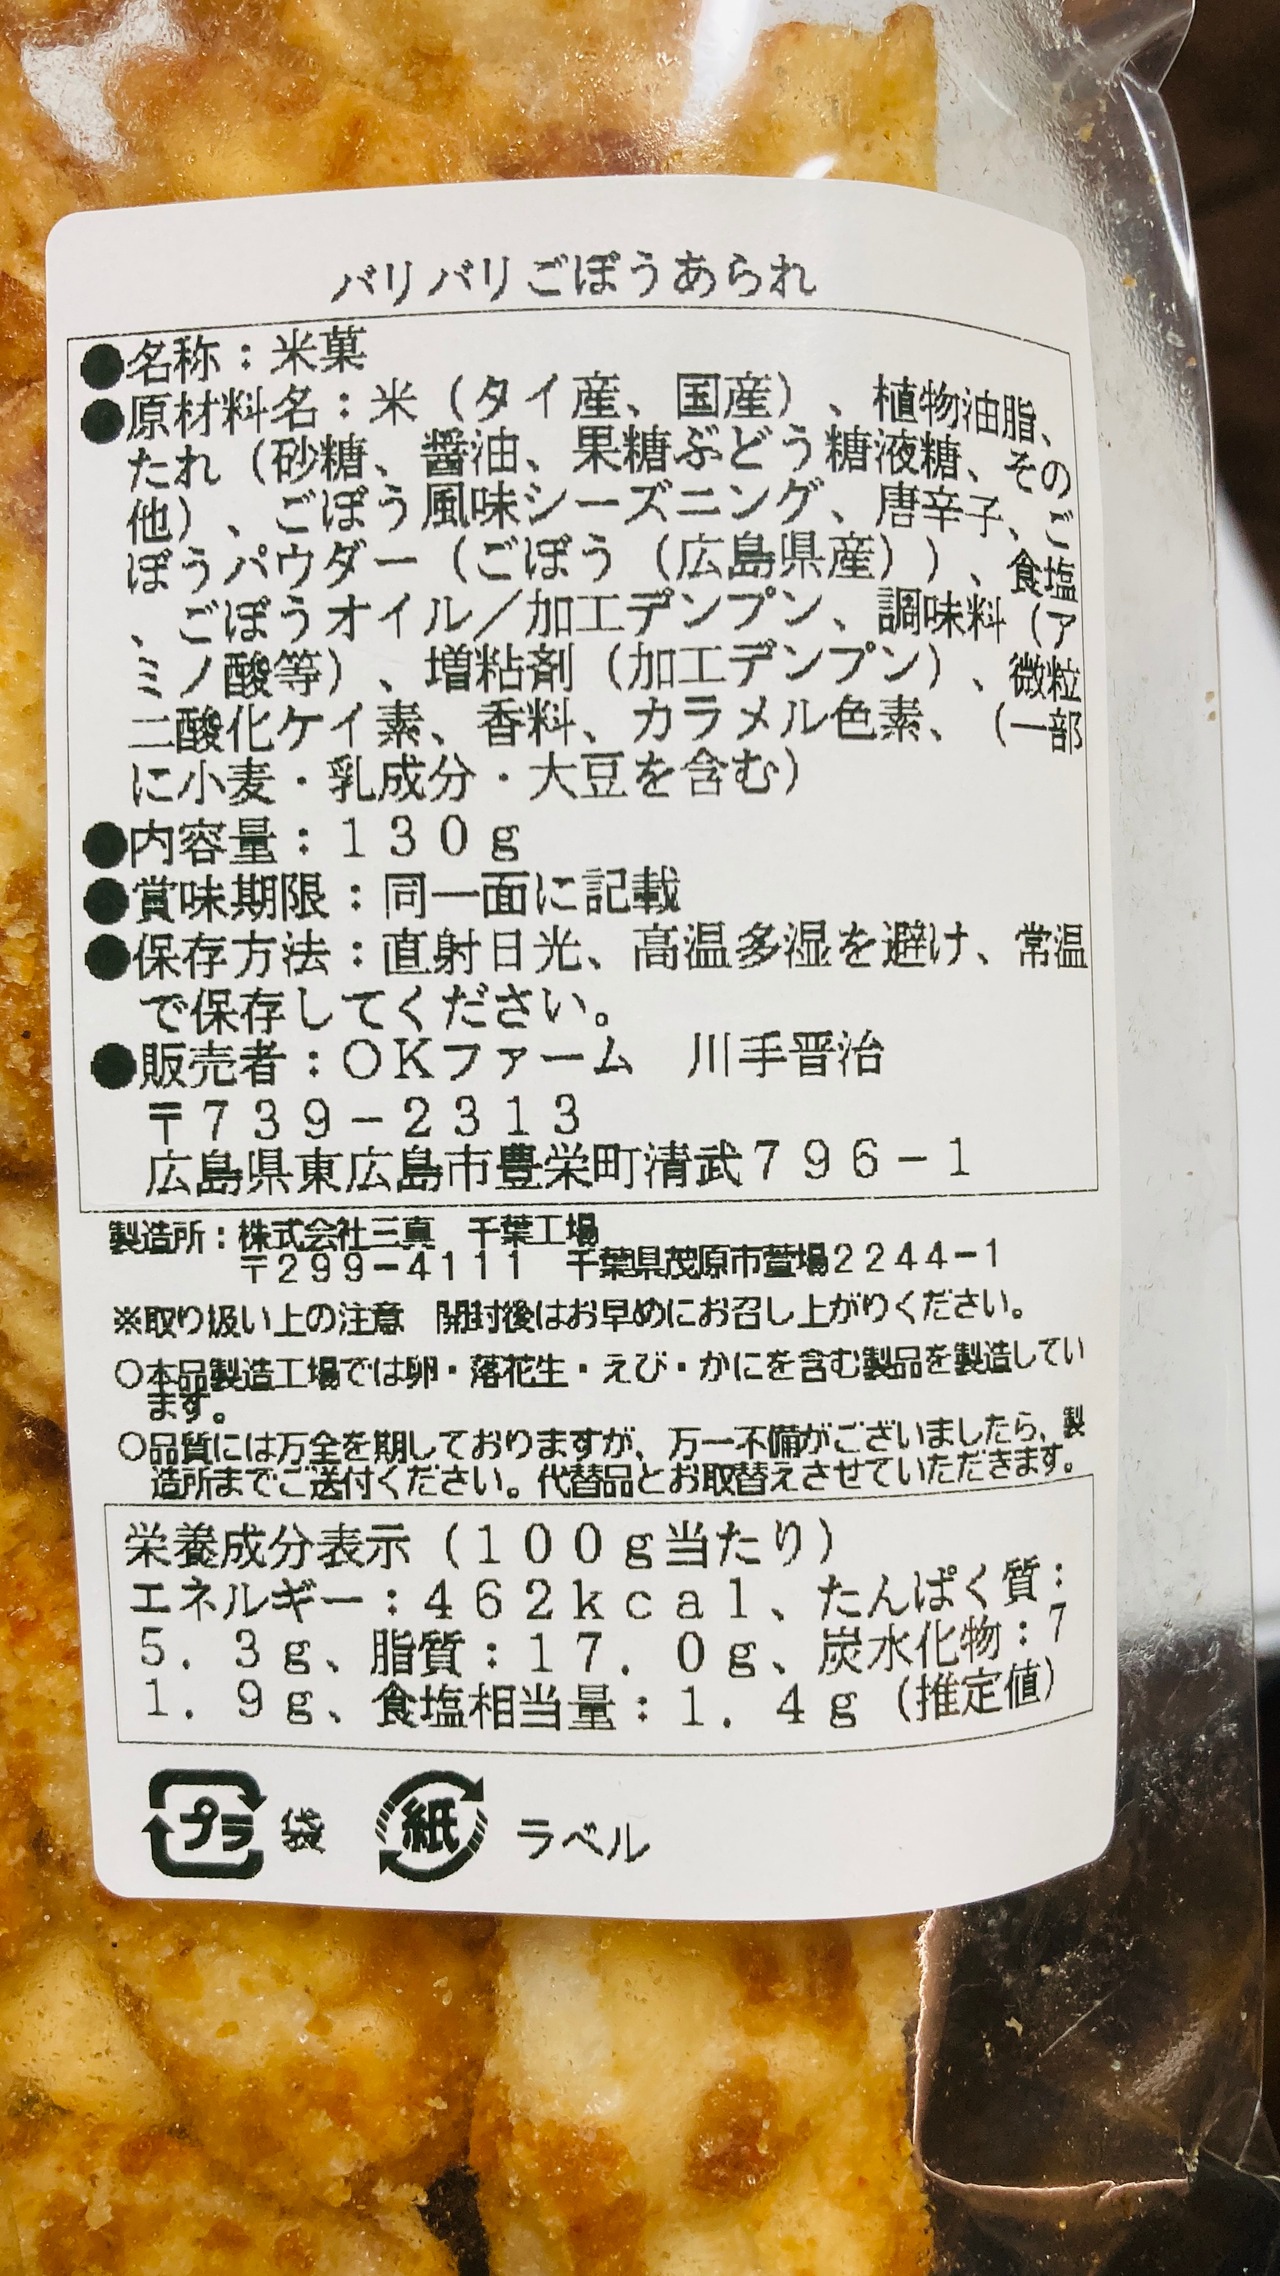 バリバリごぼうあられ
●名称：米菓
●原材料名：米（タイ産、国産）、植物油脂、
たれ（砂糖、醤油、果糖ぶどう糖液糖、その
他）、ごぼう風味シーズニング、唐辛子、ご
ぼうパウダー（ごぼう（広島県産））、食塩
、ごぼうオイル／加工デンプン、調味料（ア
ミノ酸等）、増粘剤（加工デンプン）、微粒
二酸化ケイ素、香料、カラメル色素、（一部
に小麦・乳成分・大豆を含む）
●内容量：１３０ｇ
●賞味期限：同一面に記載
●保存方法：直射日光、高温多湿を避け、常温
で保存してください。
●販売者：ＯＫファーム　川手晋治
〒７３９－２３１３
広島県東広島市豊栄町清武７９６－１
製造所：株式会社三真　千葉工場
〒２９９－４１１１　千葉県茂原市萱場２２４４－１
※取り扱い上の注意　開封後はお早めにお召し上がりください。
○本品製造工場では卵・落花生・えび・かにを含む製品を製造してい
ます。
○品質には万全を期しておりますが、万一不備がございましたら、製
造所までご送付ください。代替品とお取替えさせていただきます。
栄養成分表示（１００ｇ当たり）
エネルギー：４６２ｋｃａｌ、たんぱく質：
５．３ｇ、脂質：１７．０ｇ、炭水化物：７
１．９ｇ、食塩相当量：１．４ｇ（推定値）
プラ 袋 紙 ラベル